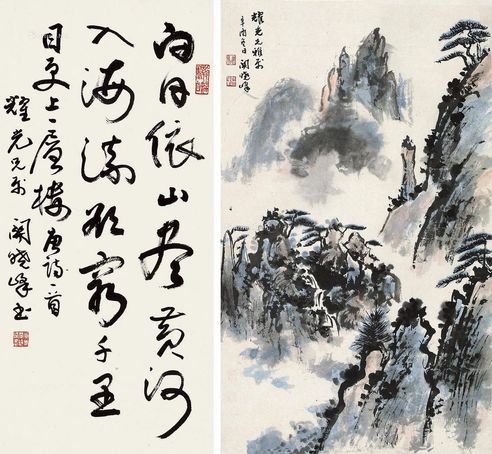 白日依山尽黄河
入海流欲穷千里
目更上一层楼 唐诗一首
耀光兄属 関晓峰书
耀光兄雅属
辛酉冬日 関晓峰